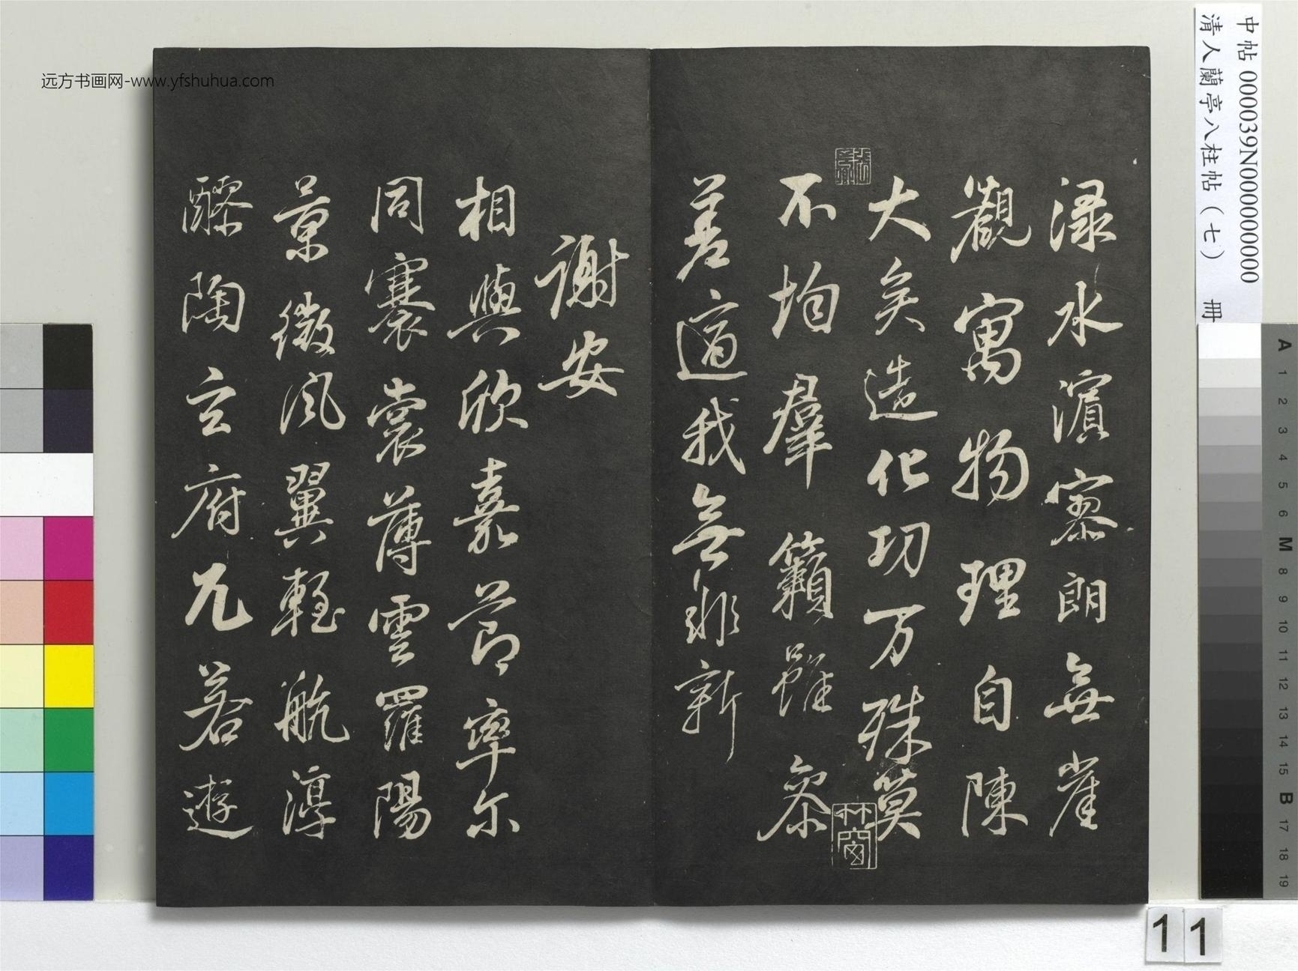 远方书画网-www.yfshuhua.com
中帖 000039N000000000
清人蘭亭八柱帖（七） 冊
渌水濱寥朗無崖
觀寓物理自陳
大矣造化功万殊莫
不均羣籟雖參
差適我無非新
謝安
相與欣嘉節率尔
同褰裳薄雲羅陽
景微風翼輕航淳
醪陶玄府兀若遊
A 1 2 3 4 5 6 M 8 9 10 11 12 13 14 15 B 17 18 19
11